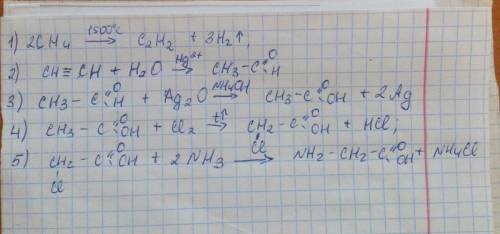 1) 2CH₄ 1500°C → C₂H₂ + 3H₂↑;
2) CH≡CH + H₂O Hg²⁺ → CH₃-C=O H
3) CH₃-C=O H + Ag₂O NH₄OH → CH₃-C=O OH + 2Ag
4) CH₃-C=O OH + Cl₂ → CH₂-C=O OH + HCl;
Cl
5) CH₂-C=O OH + 2NH₃ → NH₂-CH₂-C=O OH + NH₄Cl
Cl